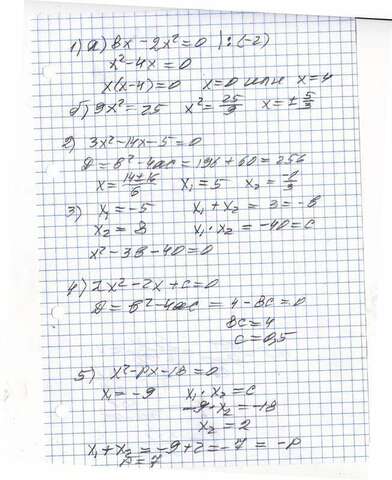 1) а) 8x - 2x² = 0 |:(-2)
x² - 4x = 0
x(x-4) = 0 x=0 или x=4
б) 9x² = 25 x² = 25/9 x = ± 5/3
2) 3x² - 14x - 5 = 0
D = b² - 4ac = 196 + 60 = 256
x = (14±16)/6 x₁ = 5 x₂ = -1/3
3) x₁ = -5 x₁ + x₂ = 3 = -b
x₂ = 8 x₁·x₂ = -40 = c
x² - 3x - 40 = 0
4) 2x² - 2x + c = 0
D = b² - 4ac = 4 - 8c = 0
8c = 4
c = 0,5
5) x² - px - 18 = 0
x₁ = -9 x₁·x₂ = c
-9·x₂ = -18
x₂ = 2
x₁ + x₂ = -9 + 2 = -7 = -p
p = 7